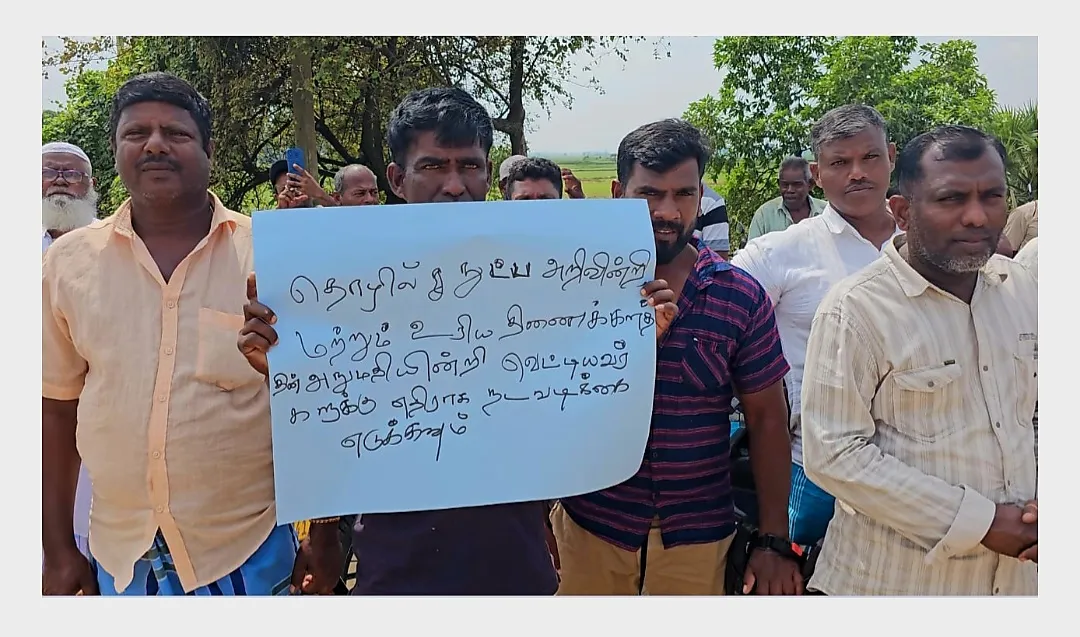 தொழில் நுட்ப அறிவின்றி
மற்றும் உரிய திணைக்களத்
தின் அநுமதியின்றி வெட்டியவர்
களுக்கு எதிராக நடவடிக்கை
எடுக்கவும்